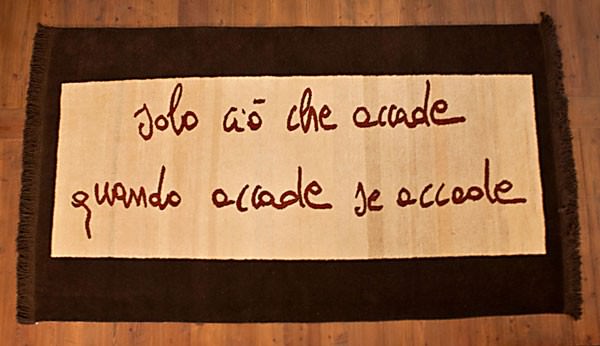 solo ciō che accade
quando accade se accade